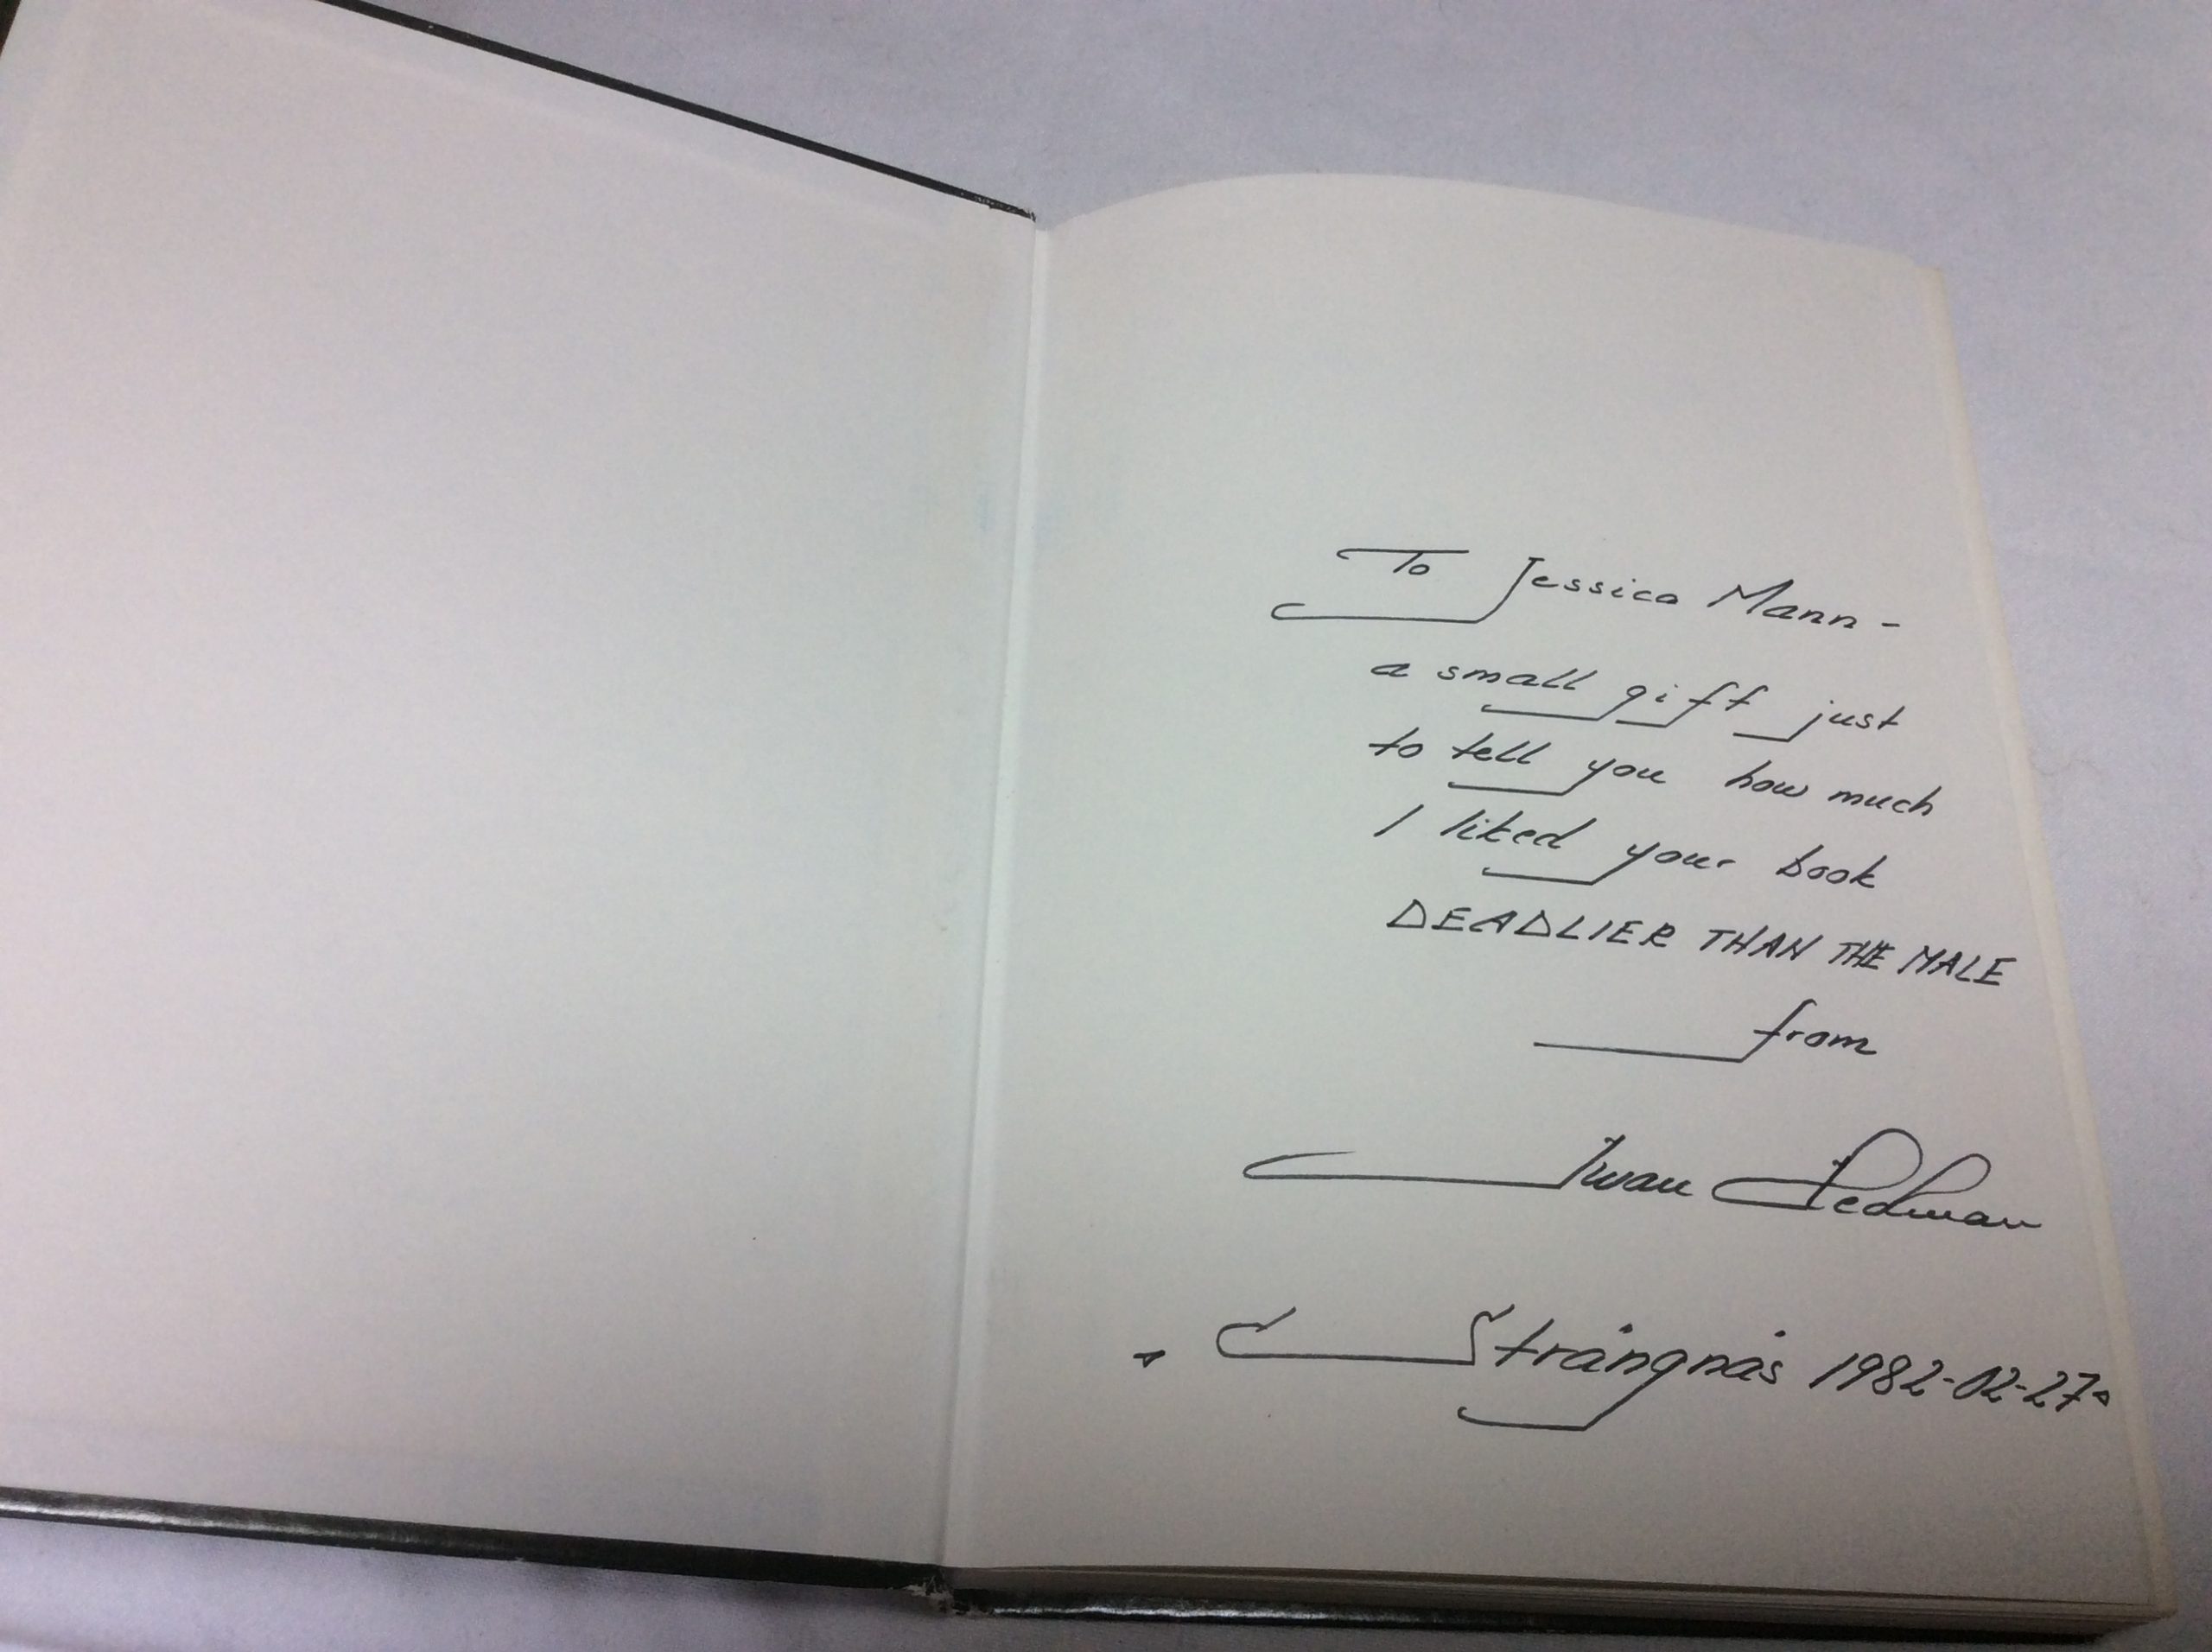 To Jessica Mann -
a small gift just
to tell you how much
I liked your book
DEADLIER THAN THE MALE
from
Iwan Hedman
Strängnäs 1982-02-27